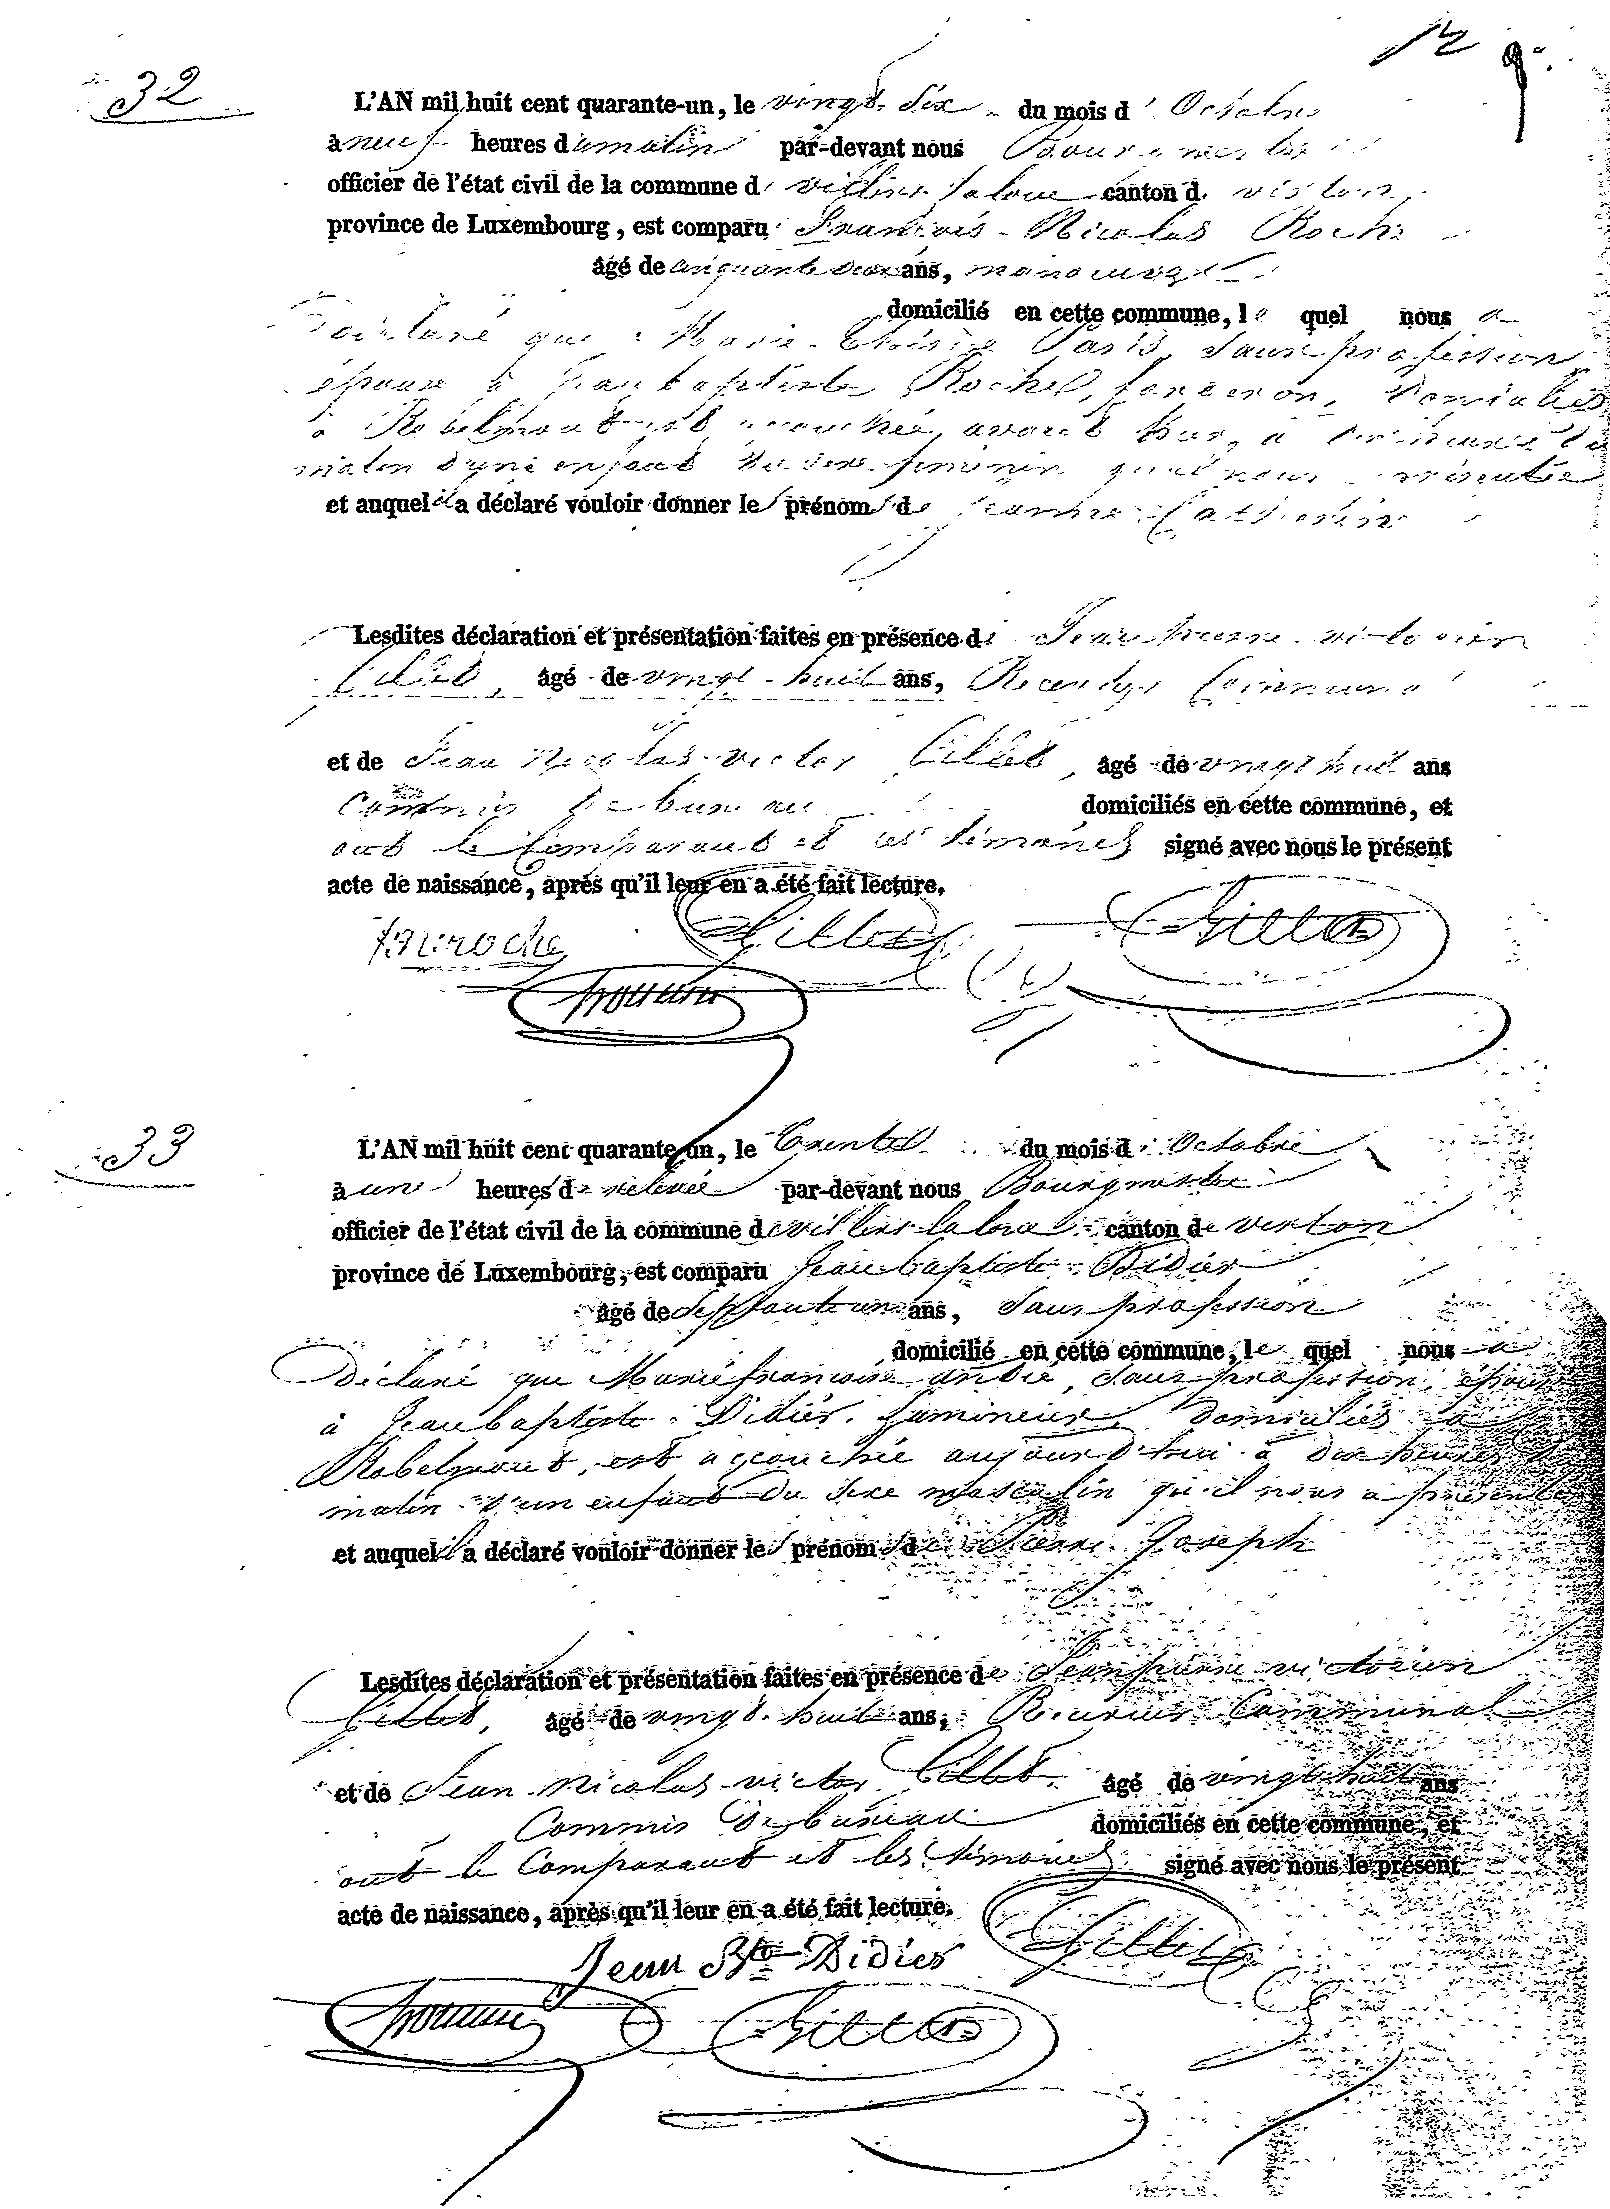 32
L'AN mil huit cent quarante-un, le vingt-six du mois d'Octobre
à neuf heures du matin par-devant nous Bourgmestre
officier de l'état civil de la commune de villers-laloue canton de virton,
province de Luxembourg, est comparu François-Nicolas Roche
âgé de cinquante deux ans, manouvrier
domicilié en cette commune, lequel nous a
déclaré que Marie-Thérèse Paris, sans profession,
épouse à Jean baptiste Roche, forgeron, domiciliés
à Robelmont est accouchée, avant hier, à heures du
matin d'un enfant du sexe féminin qu'il nous a présentée
et auquel il a déclaré vouloir donner les prénoms de Jeanne Catherine
Lesdites déclaration et présentation faites en présence de Jean pierre victorien
Gillet, âgé de vingt-huit ans, Receveur Communal
et de Jean Nicolas-victor Gillet, âgé de vingt huit ans
Commis de bureau domiciliés en cette commune, et
ont le Comparant et les témoins signé avec nous le présent
acte de naissance, après qu'il leur en a été fait lecture.
roche Gillet Gillet
33
L'AN mil huit cent quarante-un, le trente du mois d'Octobre
à une heures de relevée par-devant nous Bourgmestre
officier de l'état civil de la commune de villers-laloue canton de virton
province de Luxembourg, est comparu Jean baptiste Didier
âgé de septante un ans, sans profession
domicilié en cette commune, lequel nous a
Déclaré que Marie françoise andré, sans profession, épouse
à Jean baptiste Didier, domiciliés à
Robelmont, est accouchée aujourd'hui à dix heures
matin d'un enfant du sexe masculin qu'il nous a présenté
et auquel il a déclaré vouloir donner les prénoms de Pierre Joseph
Lesdites déclaration et présentation faites en présence de Jean pierre victorien
Gillet, âgé de vingt-huit ans, Receveur Communal
et de Jean Nicolas-victor Gillet. âgé de vingt huit ans
Commis de bureau domiciliés en cette commune, et
ont le Comparant et les témoins signé avec nous le présent
acte de naissance, après qu'il leur en a été fait lecture.
Jean Bte Didier Gillet
Gillet